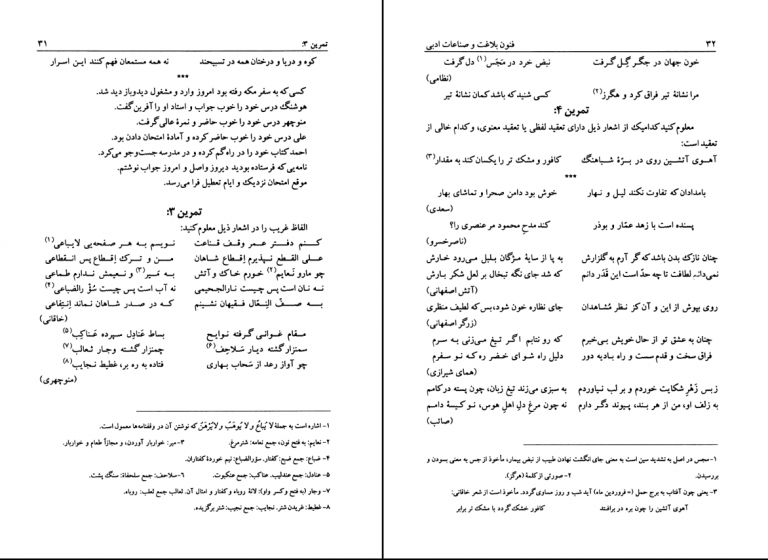 تمرین ۳: ۳۱
کوه و دریا و درختان همه در تسبیحند نه همه مستمعان فهم کنند این اسرار
***
کسی‌که به سفر مکه رفته بود امروز وارد و مشغول دیدوباز دید شد.
هوشنگ درس خود را خوب جواب و استاد او را آفرین‌گفت.
منوچهر درس خود را خوب حاضر و نمرهٔ عالی‌گرفت.
علی درس خود را خوب حاضر کرده و آمادهٔ امتحان دادن بود.
احمد کتاب خود را در راه‌گم کرده و در مدرسه جست‌وجو می‌کرد.
نامه‌یی که فرستاده بودید دیروز واصل و امروز جواب نوشتم.
موقع امتحان نزدیک و ایام تعطیل فرا می‌رسد.
تمرین ۳:
الفاظ غریب را در اشعار ذیل معلوم‌کنید:
کنم دفتر عمر وقف قناعت نویسم به هر صفحه‌یی لایباعی(۱)
علی القطع نپذیرم إقطاع شاهان من و ترک إقطاع پس انقطاعی
چو مارو نَعایم(۲) خورم خاک و آتش به تمیر(۳) و نعیمش ندارم طماعی
نه نان است پس چیست نارالجحیمی نه آب است پس چیست سُؤر الضباعی(۴)
به صفّ النِعّال فقیهان نشینم که در صدر شاهان نماند اِنتِفاعی
(خاقانی)
مقام غوانی گرفته نوایح بساط عَنادِل سپرده عَناکِب(۵)
سمنزار گشته دیار سَلاحِف(۶) چمنزار گشته وجار ثعالب(۷)
چو آواز رعد از سَحاب بهاری فتاده به ره بر، غطیط نجایب(۸)
(منوچهری)
۱- اشاره است به جملهٔ لا یُباعُ و لا یُوهَبُ و لا یُرهَنُ که نوشتن آن در وقفنامه‌ها معمول است.
۲- نعایم: به فتح نون، جمع نعامه: شترمرغ. ۳- میر: خواربار آوردن، و مجازاً طعام و خواربار.
۴- ضباع: جمع ضبع: کفتار. سؤرالضباع: نیم خوردهٔ کفتاران.
۵- عنادل: جمع عندلیب. عناکب: جمع عنکبوت. ۶- سلاحف: جمع سلحفاة: سنگ پشت.
۷- وجار (به فتح وکسر واو): لانهٔ روباه و کفتار و امثال آن. ثعالب جمع ثعلب: روباه.
۸- غطیط: غریدن شتر. نجایب: جمع نجیب: شتر برگزیده.
۳۲ فنون بلاغت و صناعات ادبی
خون جهان در جگر گِل گرفت نبض خرد در مَجَس(۱) دل گرفت
(نظامی)
مرا نشانهٔ تیر فراق کرد و هگرز(۲) کسی شنید که باشد کمان نشانهٔ تیر
تمرین ۴:
معلوم‌کنید کدامیک از اشعار ذیل دارای تعقید لفظی یا تعقید معنوی، و کدام خالی از
تعقید است:
آهوی آتشین روی در برّهٔ شباهنگ کافور و مشک تر را یکسان کند به مقدار(۳)
***
بامدادان که تفاوت نکند لیل و نهار خوش بود دامن صحرا و تماشای بهار
(سعدی)
پسنده است با زهد عمّار و بوذر کند مدح محمود مر عنصری را؟
(ناصرخسرو)
چنان نازک بدن باشد که گر آرم به گلزارش به پا از سایهٔ مژگان بلبل می‌رود خارش
نمی‌دانم لطافت تا چه حدّ است این قدر دانم که شد جای نگه تبخال بر لعل شکر بارش
(آتش اصفهانی)
روی بپوش از این و آن کز نظر مُشاهدان جای نظاره خون شود، بس که لطیف منظری
(زرگر اصفهانی)
چنان به عشق تو از حال خویش بی‌خبرم که رو نتابم اگر تیغ می‌زنی به سرم
فراق سخت و قدم سست و راه بادیه دور دلیل راه شو ای خضر ره که نو سفرم
(همای شیرازی)
زبس زَهرِ شکایت خوردم و بر لب نیاوردم به سبزی می‌زند تیغ زبان، چون پسته در کامم
به زلف او، من از هر بند، پیوند دگر دارم نه چون مرغِ دلِ اهلِ هوس، نو کیسهٔ دامم
(صائب)
۱- مجس در اصل به تشدید سین است به معنی جای انگشت نهادن طبیب از نبض بیمار، مأخوذ از جس به معنی بسودن و
بررسیدن. ۲- صورتی از کلمهٔ (هرگز).
۳- یعنی چون آفتاب به برج حمل (= فروردین ماه) آید شب و روز مساوی گردد. مأخوذ است از شعر خاقانی:
آهوی آتشین را چون بره در برافتد کافور خشک گردد با مشک تر برابر